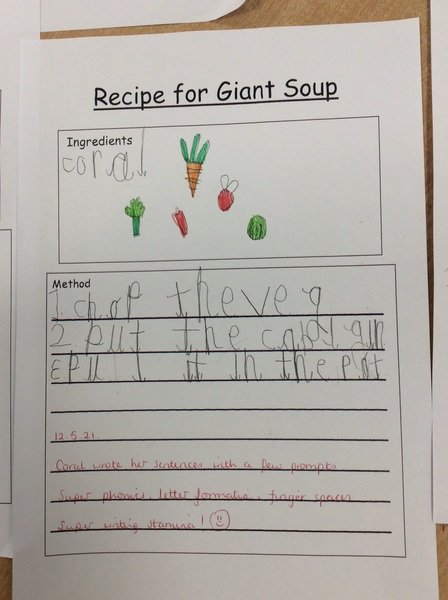 Recipe for Giant Soup
Ingredients
coral
Method
1. chop the veg
2 put the
3 put it in the pot
12.5.21.
Coral wrote her sentences with a few prompts
Super phonics, letter formation, finger spaces
Super writing stamina!